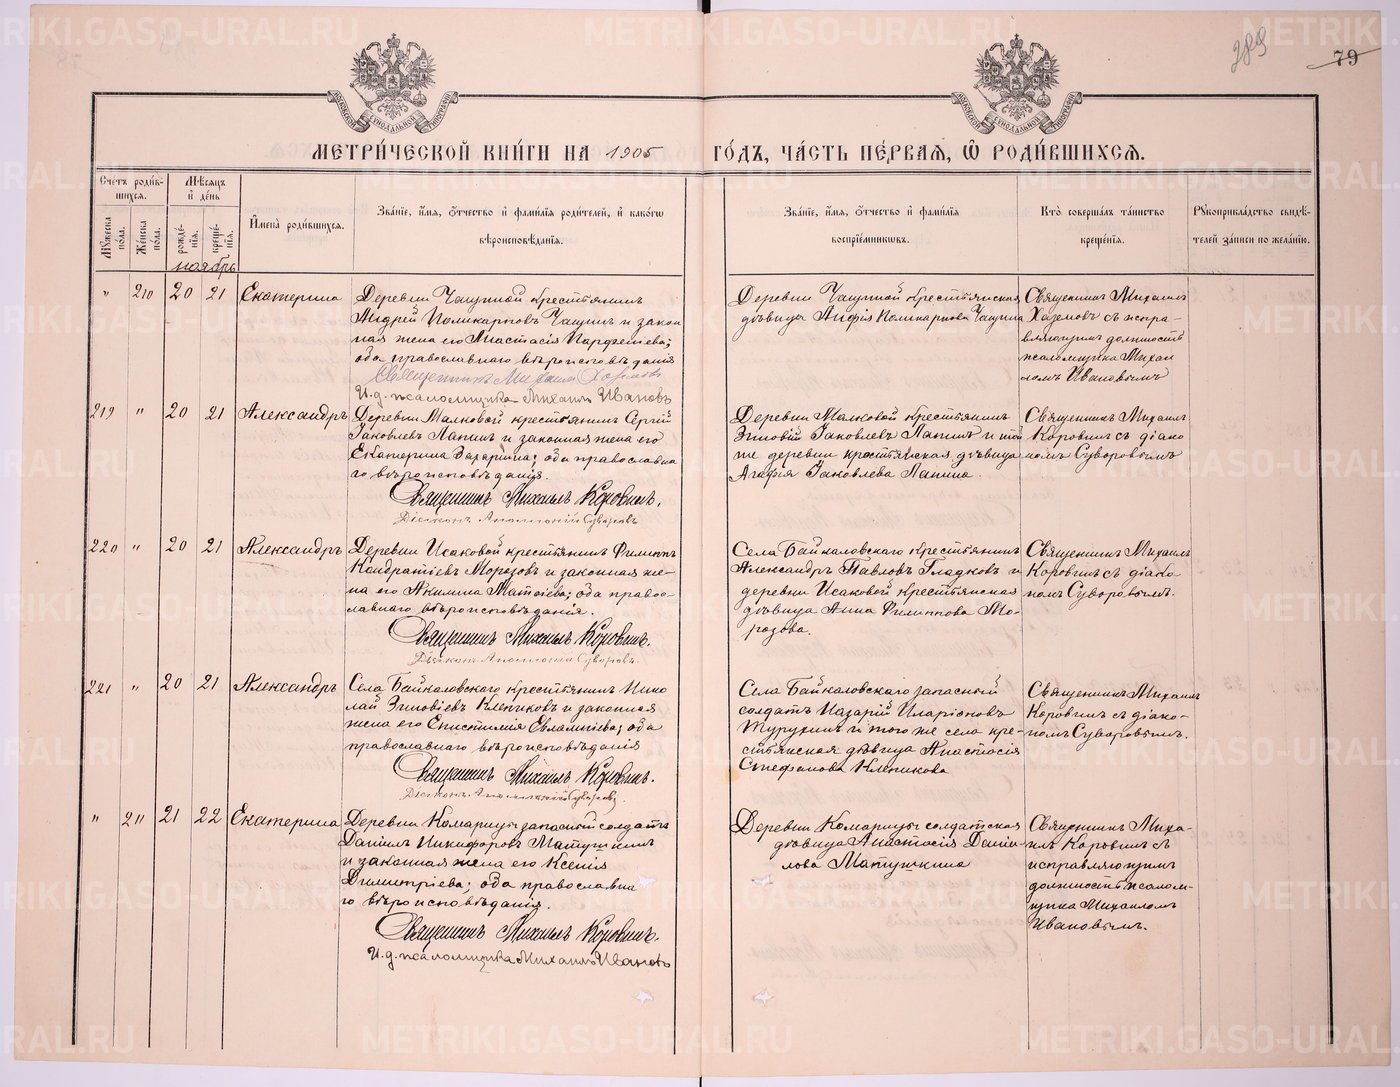 289
79
МЕТРИ́ЧЕСКОЙ КНИ́ГИ НА 1905 ГО́ДЪ, ЧА́СТЬ ПЕ́РВАЯ, Ѡ РОДИ́ВШИХСЯ.
Счетъ роди́в-
шихся.
Мꙋжеска пола.
Же́нска пола.
Мѣсяцъ
и де́нь
рожде́-
нія.
креще́-
нія.
И҆мена̀ роди́вшихся.
Зва́ніе, и҆́мя, ѻ҆́тчество и҆ фами́лія роди́телей, и҆ како́гѡ
вѣроисповѣ́данія.
Зва́ніе, и҆́мя, ѻ҆́тчество и҆ фами́лія
воспріе́мниковъ.
Кто̀ соверша́лъ та́инство
креще́нія.
Рꙋкоприкла́дство свидѣ́-
телей за́писи по жела́нію.
ноябрь
" 210 20 21 Екатерина
Деревни Чащиной крестьянинъ
Андрей Поликарповъ Чащинъ и закон
ная жена его Анастасія Парфеніева;
оба православнаго вѣроисповѣданія
Священникъ Михаилъ Хаземовъ
И. д. псаломщика Михаилъ Ивановъ
Деревни Чащиной крестьянская
дѣвица Анфія Поликарпова Чащина
Священникъ Михаилъ
Хаземовъ съ испра-
вляющимъ должность
псаломщика Михаи
ломъ Ивановымъ
219 " 20 21 Александръ
Деревни Малковой крестьянинъ Сергій
Іаковлевъ Лапинъ и законная жена его
Екатерина Захаріина; оба православна
го вѣроисповѣданія.
Священникъ Михаилъ Коровинъ.
Діаконъ Аполлоній Суворовъ
Деревни Малковой крестьянинъ
Зиновій Іаковлевъ Лапинъ и той
же деревни крестьянская дѣвица
Агафія Іаковлева Лапина.
Священникъ Михаилъ
Коровинъ съ діако
номъ Суворовымъ
220 " 20 21 Александръ
Деревни Исаковой крестьянинъ Филиппъ
Кондратіевъ Морозовъ и законная же-
на его Акилина Матѳіева; оба право-
славнаго вѣроисповѣданія.
Священникъ Михаилъ Коровинъ.
Діаконъ Аполлоній Суворовъ.
Села Байкаловскаго крестьянинъ
Александръ Павловъ Гладковъ и
деревни Исаковой крестьянская
дѣвица Анна Филиппова Мо-
розова.
Священникъ Михаилъ
Коровинъ съ діако
номъ Суворовымъ.
221 " 20 21 Александръ
Села Байкаловскаго крестьянинъ Нико
лай Зиновіевъ Клепиковъ и законная
жена его Епистимія Евлампіева; оба
православнаго вѣроисповѣданія
Священникъ Михаилъ Коровинъ.
Діаконъ Аполлоній Суворовъ.
Села Байкаловскаго запасный
солдатъ Назарій Иларіоновъ
Шурухинъ и того же села кре-
стьянская дѣвица Анастасія
Стефанова Клепикова
Священникъ Михаилъ
Коровинъ съ діако-
номъ Суворовымъ.
" 211 21 22 Екатерина
Деревни Комарицы запасный солдатъ
Даніилъ Никифоровъ Матушкинъ
и законная жена его Ксенія
Димитріева; оба православна
го вѣроисповѣданія.
Священникъ Михаилъ Коровинъ.
И. д. псаломщика Михаилъ Ивановъ
Деревни Комарицы солдатская
дѣвица Анастасія Даніи-
лова Матушкина
Священникъ Миха-
илъ Коровинъ съ
исправляющимъ
должность псалом-
щика Михаиломъ
Ивановымъ.